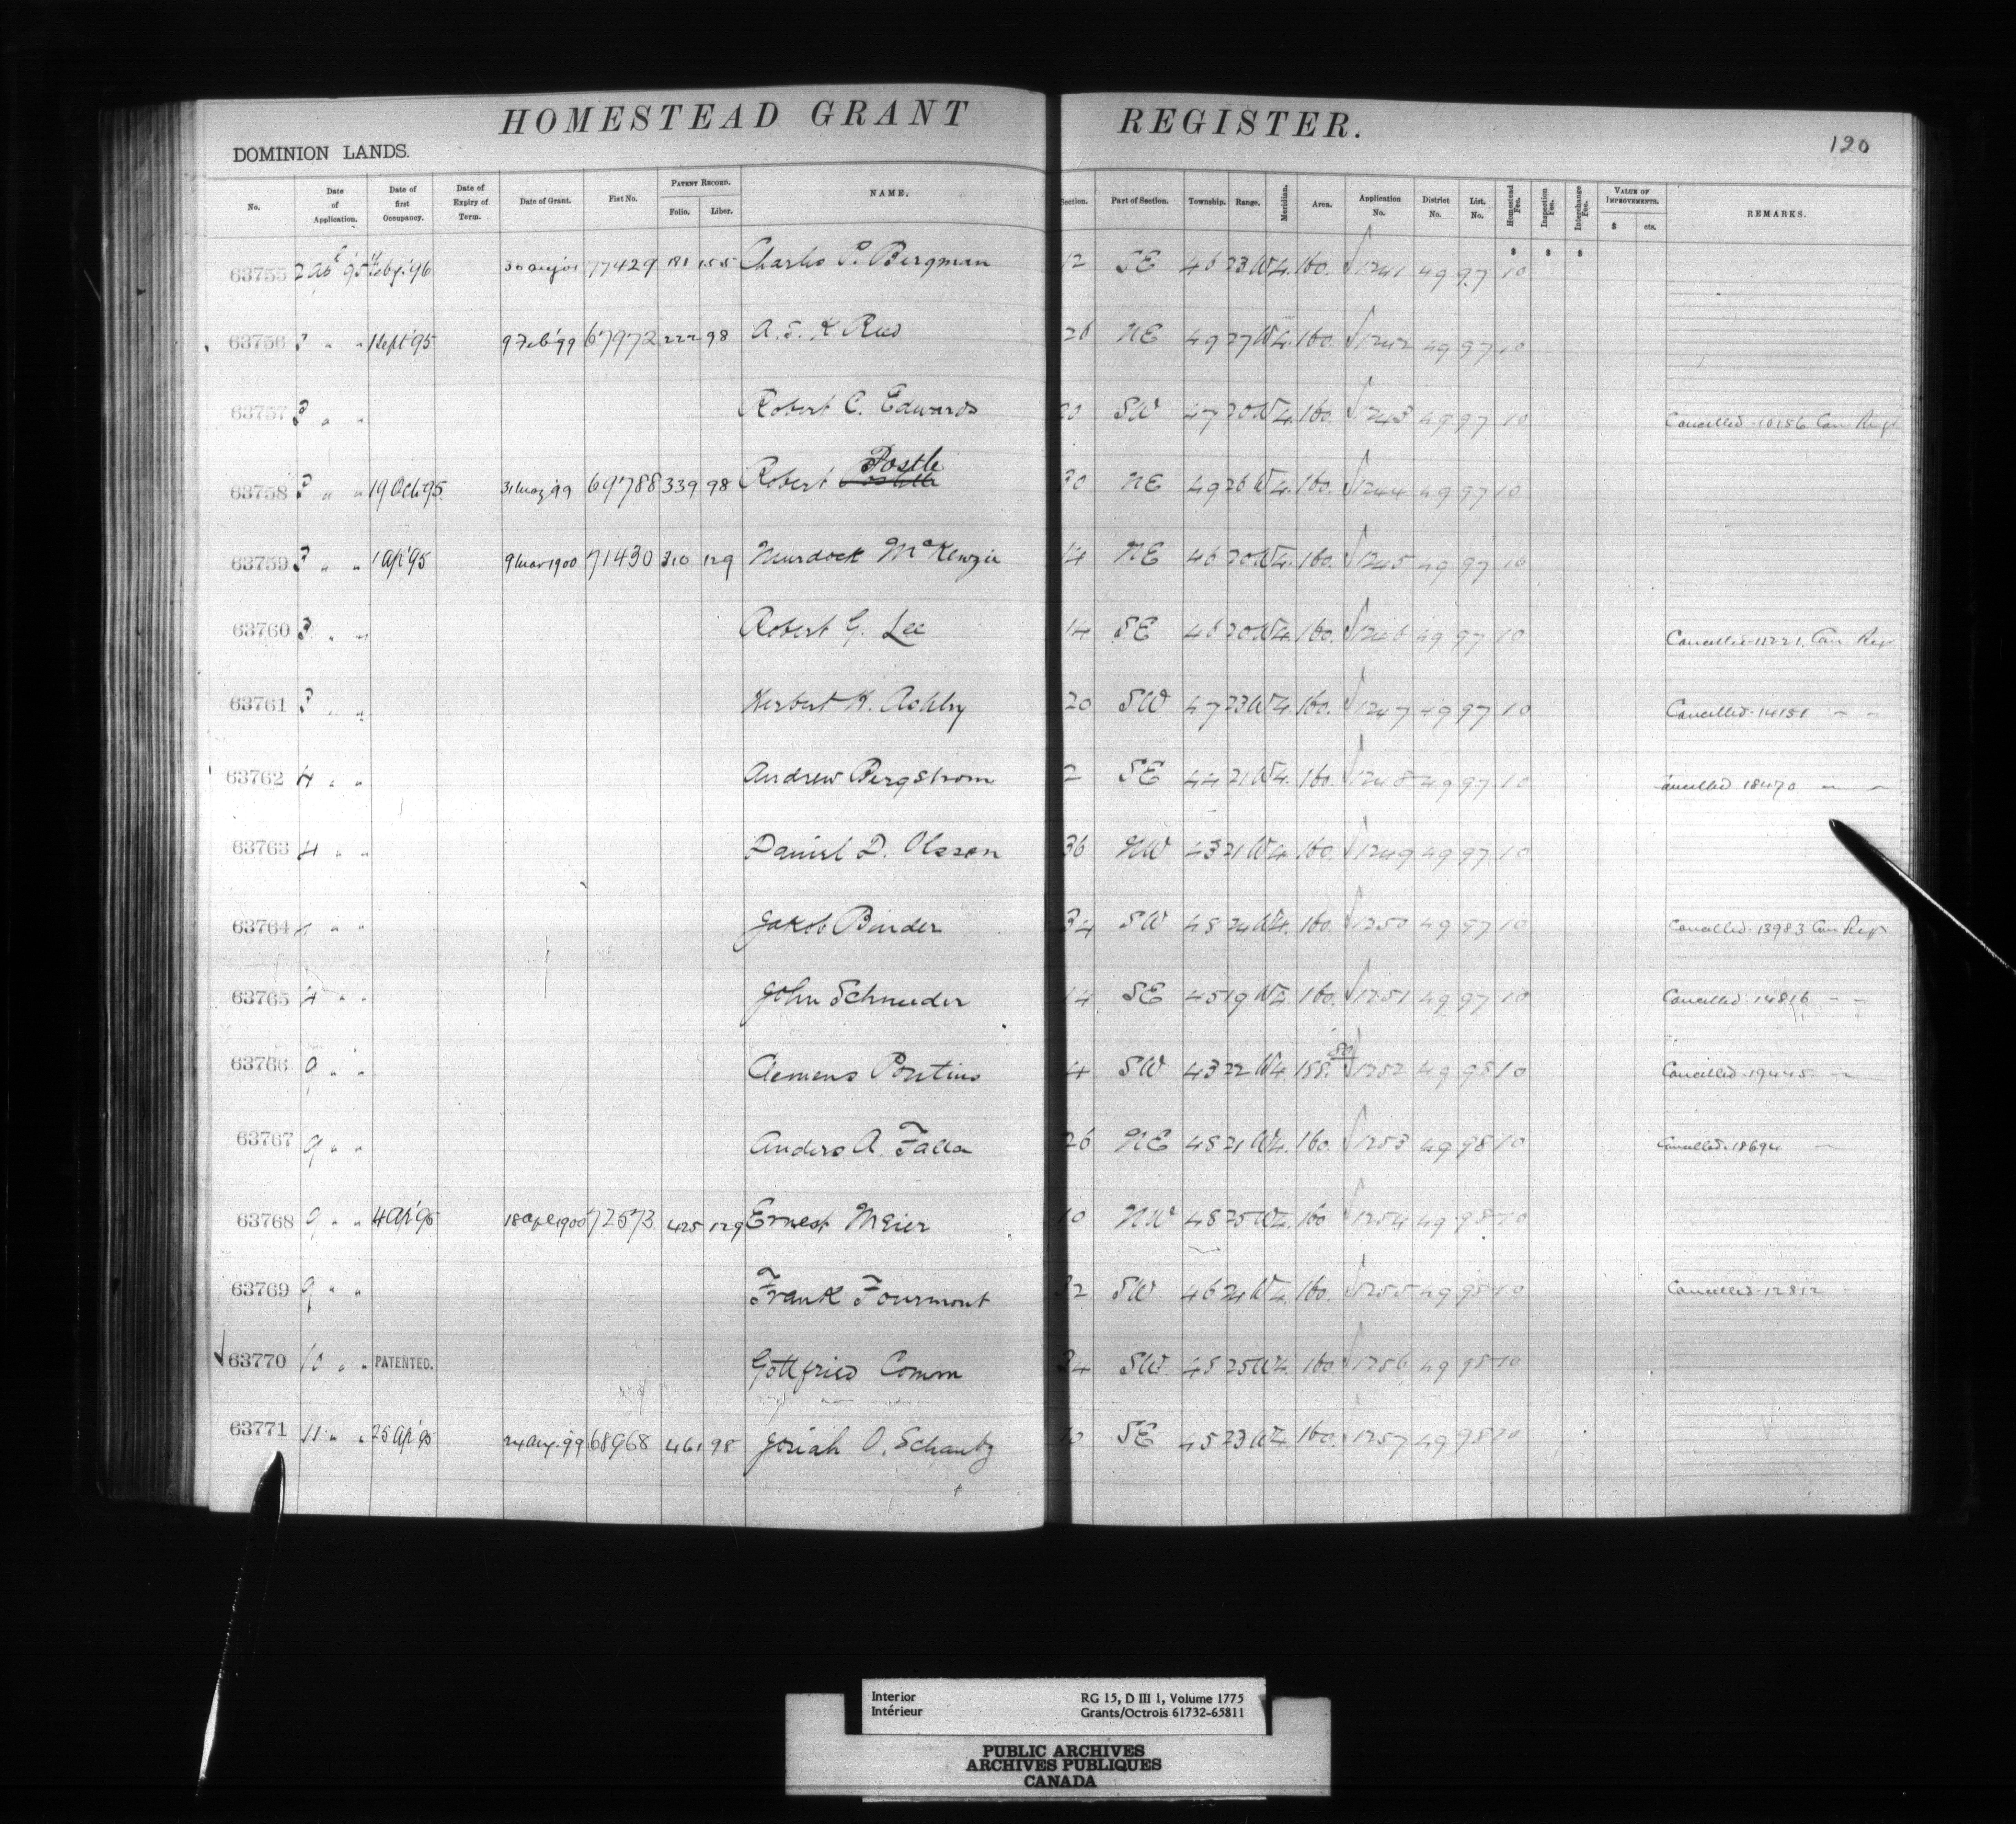 HOMESTEAD GRANT REGISTER.
120
DOMINION LANDS.
No. Date of Application. Date of first Occupancy. Date of Expiry of Term. Date of Grant. Fist No. PATENT RECORD. Folio. Liber. NAME. Section. Part of Section. Township. Range. Meridian. Area. Application No. District No. List. No. Homestead Fee. Inspection Fee. Interchange Fee. VALUE OF IMPROVEMENTS. $ cts. REMARKS.
$ $ $
63755 2 Apl '95 '96 77429 181 155 Charles P. Bergman 12 SE 46 23 W 4. 160. 1241 49 97 10
63756 3 " " 1 Sept '95 9 Feb '99 67972 222 98 A. J. K Reed 26 NE 49 27 W 4. 160. 1242 49 97 10
63757 3 " " Robert C. Edwards 20 SW 47 20 W 4. 160. 1243 49 97 10 Cancelled 10156 Can Regr
63758 3 " " 19 Oct 95. 31 May '99 69788 339 98 Robert Postle 30 NE 49 26 W 4. 160. 1244 49 97 10
63759 3 " " 1 Ap '95 9 Mar 1900 71430 310 129 Murdock McKenzie 14 NE 46 20 W 4. 160. 1245 49 97 10
63760 3 " " Robert G. Lee 14 SE 46 20 W 4. 160. 1246 49 97 10 Cancelled 11221. Can Regr
63761 3 " " Herbert H. Ashby 20 SW 47 23 W 4. 160. 1247 49 97 10 Cancelled 14151 " "
63762 4 " " Andrew Bergstrom 2 SE 44 21 W 4. 160. 1248 49 97 10 Cancelled 18470 " "
63763 4 " " Daniel D. Olsson 36 NW 43 21 W 4. 160. 1249 49 97 10
63764 4 " " Jakob Binder 34 SW 48 24 W 4. 160. 1250 49 97 10 Cancelled 13983 Can Regr
63765 4 " " John Schneider 14 SE 45 19 W 4. 160. 1251 49 97 10 Cancelled 14816 " "
63766 9 " " Clemens Pontius 4 SW 43 22 W 4. 158. 80 1252 49 98 10 Cancelled 19445 "
63767 9 " " Anders A. Falla 26 NE 48 21 W 4. 160. 1253 49 98 10 Cancelled 18694 "
63768 9 " " 4 Ap '95 18 Apl 1900 72573 425 129 Ernest Meier 10 NW 48 25 W 4. 160 1254 49 98 10
63769 9 " " Frank Fourmont 32 SW 46 24 W 4. 160. 1255 49 98 10 Cancelled 12812 "
63770 10 " " PATENTED. Gottfried Comm 24 SW. 48 25 W 4. 160. 1256 49 98 10
63771 11 " " 25 Ap '95 24 Aug. '99 68968 461 98 Josiah O. Schantz 10 SE 45 23 W 4. 160. 1257 49 98 10
Interior RG 15, D III 1, Volume 1775
Intérieur Grants/Octrois 61732-65811
PUBLIC ARCHIVES
ARCHIVES PUBLIQUES
CANADA